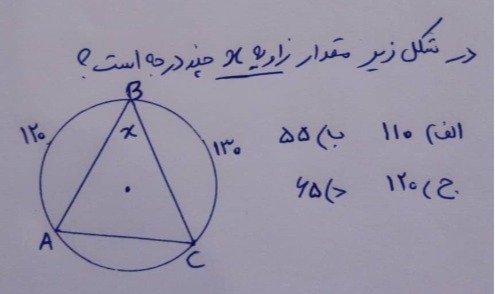 در شکل زیر مقدار زاویه x چند درجه است؟
B
۱۲۰
x
۱۳۰
A
C
الف) ۱۱۰ ب) ۵۵
ج) ۱۲۰ د) ۶۵